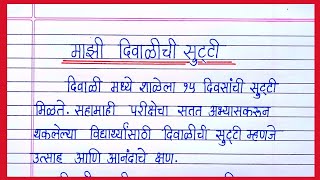 माझी दिवाळीची सुट्टी
दिवाळी मध्ये शाळेला १५ दिवसांची सुट्टी
मिळते. सहामाही परीक्षेचा सतत अभ्यासकरून
थकलेल्या विद्यार्थ्यांसाठी दिवाळीची सुट्टी म्हणजे
उत्साह आणि आनंदाचे क्षण.